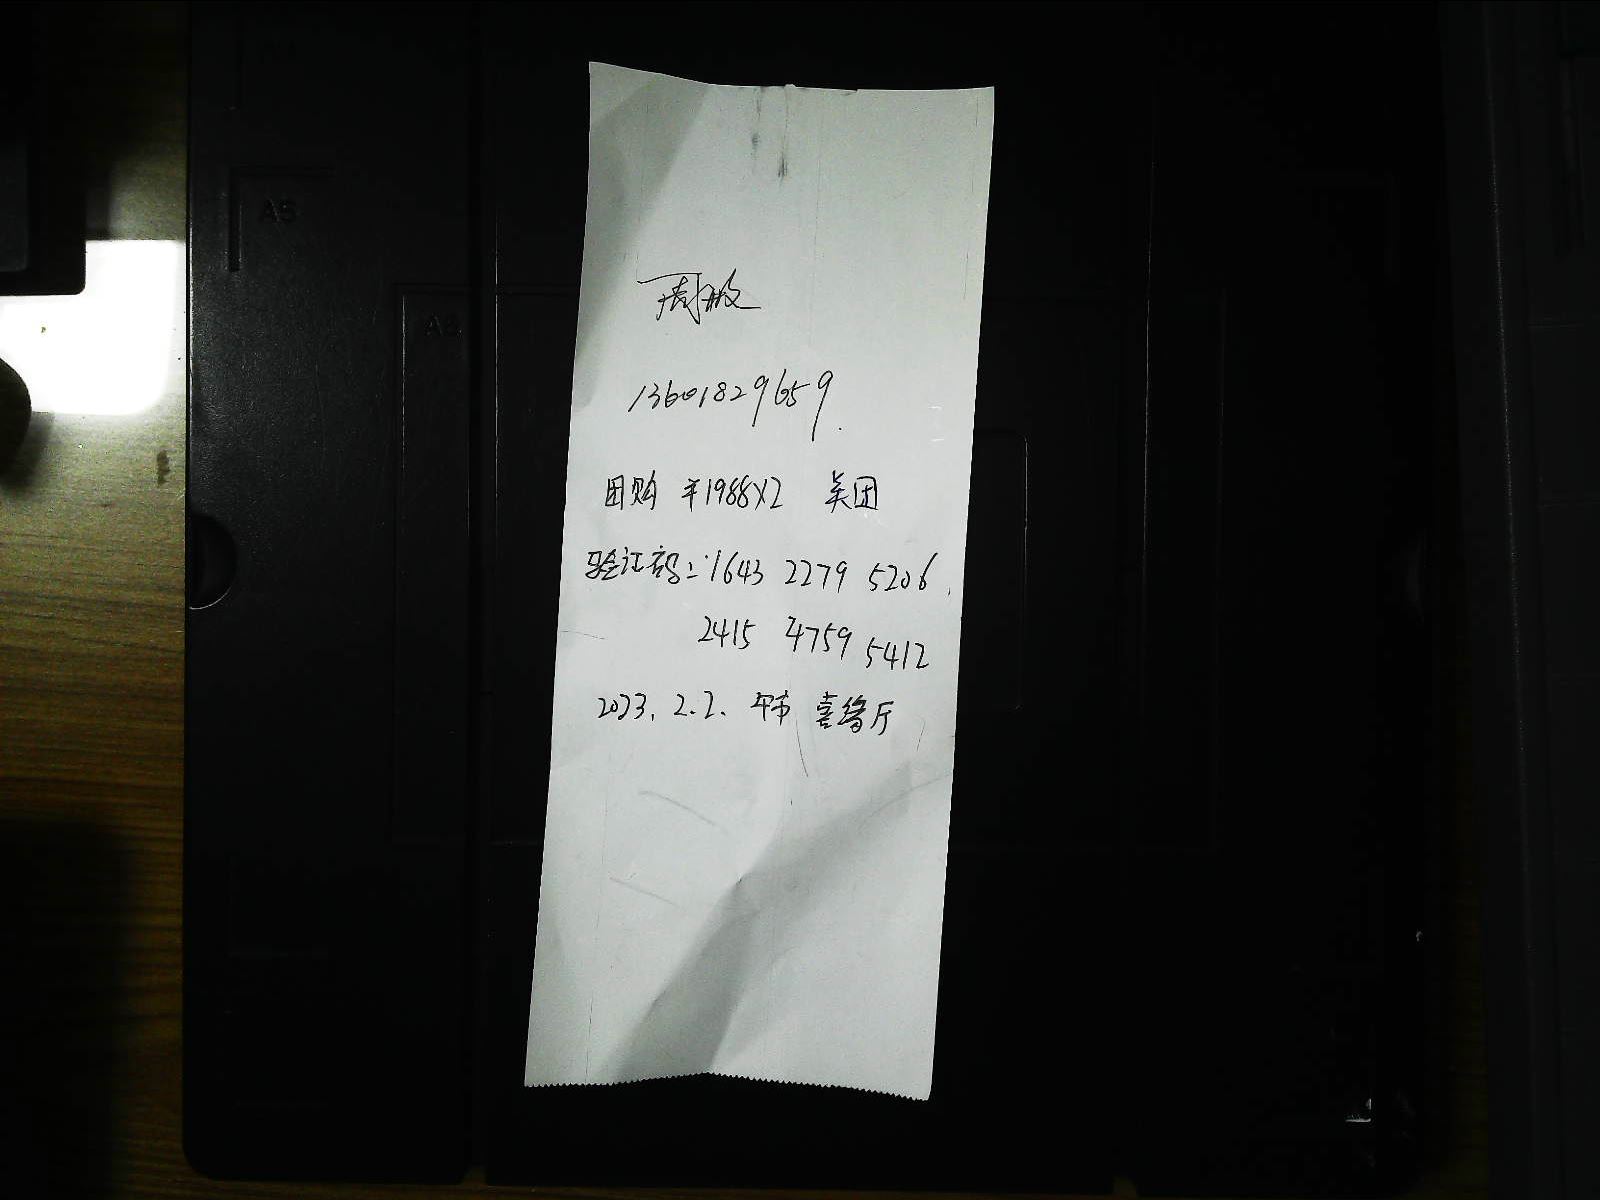 周
13601829659.
团购 ¥1988X2 美团
验证码：1643 2279 5206.
2415 4759 5412
2023. 2.2. 午市 喜缘厅
A5